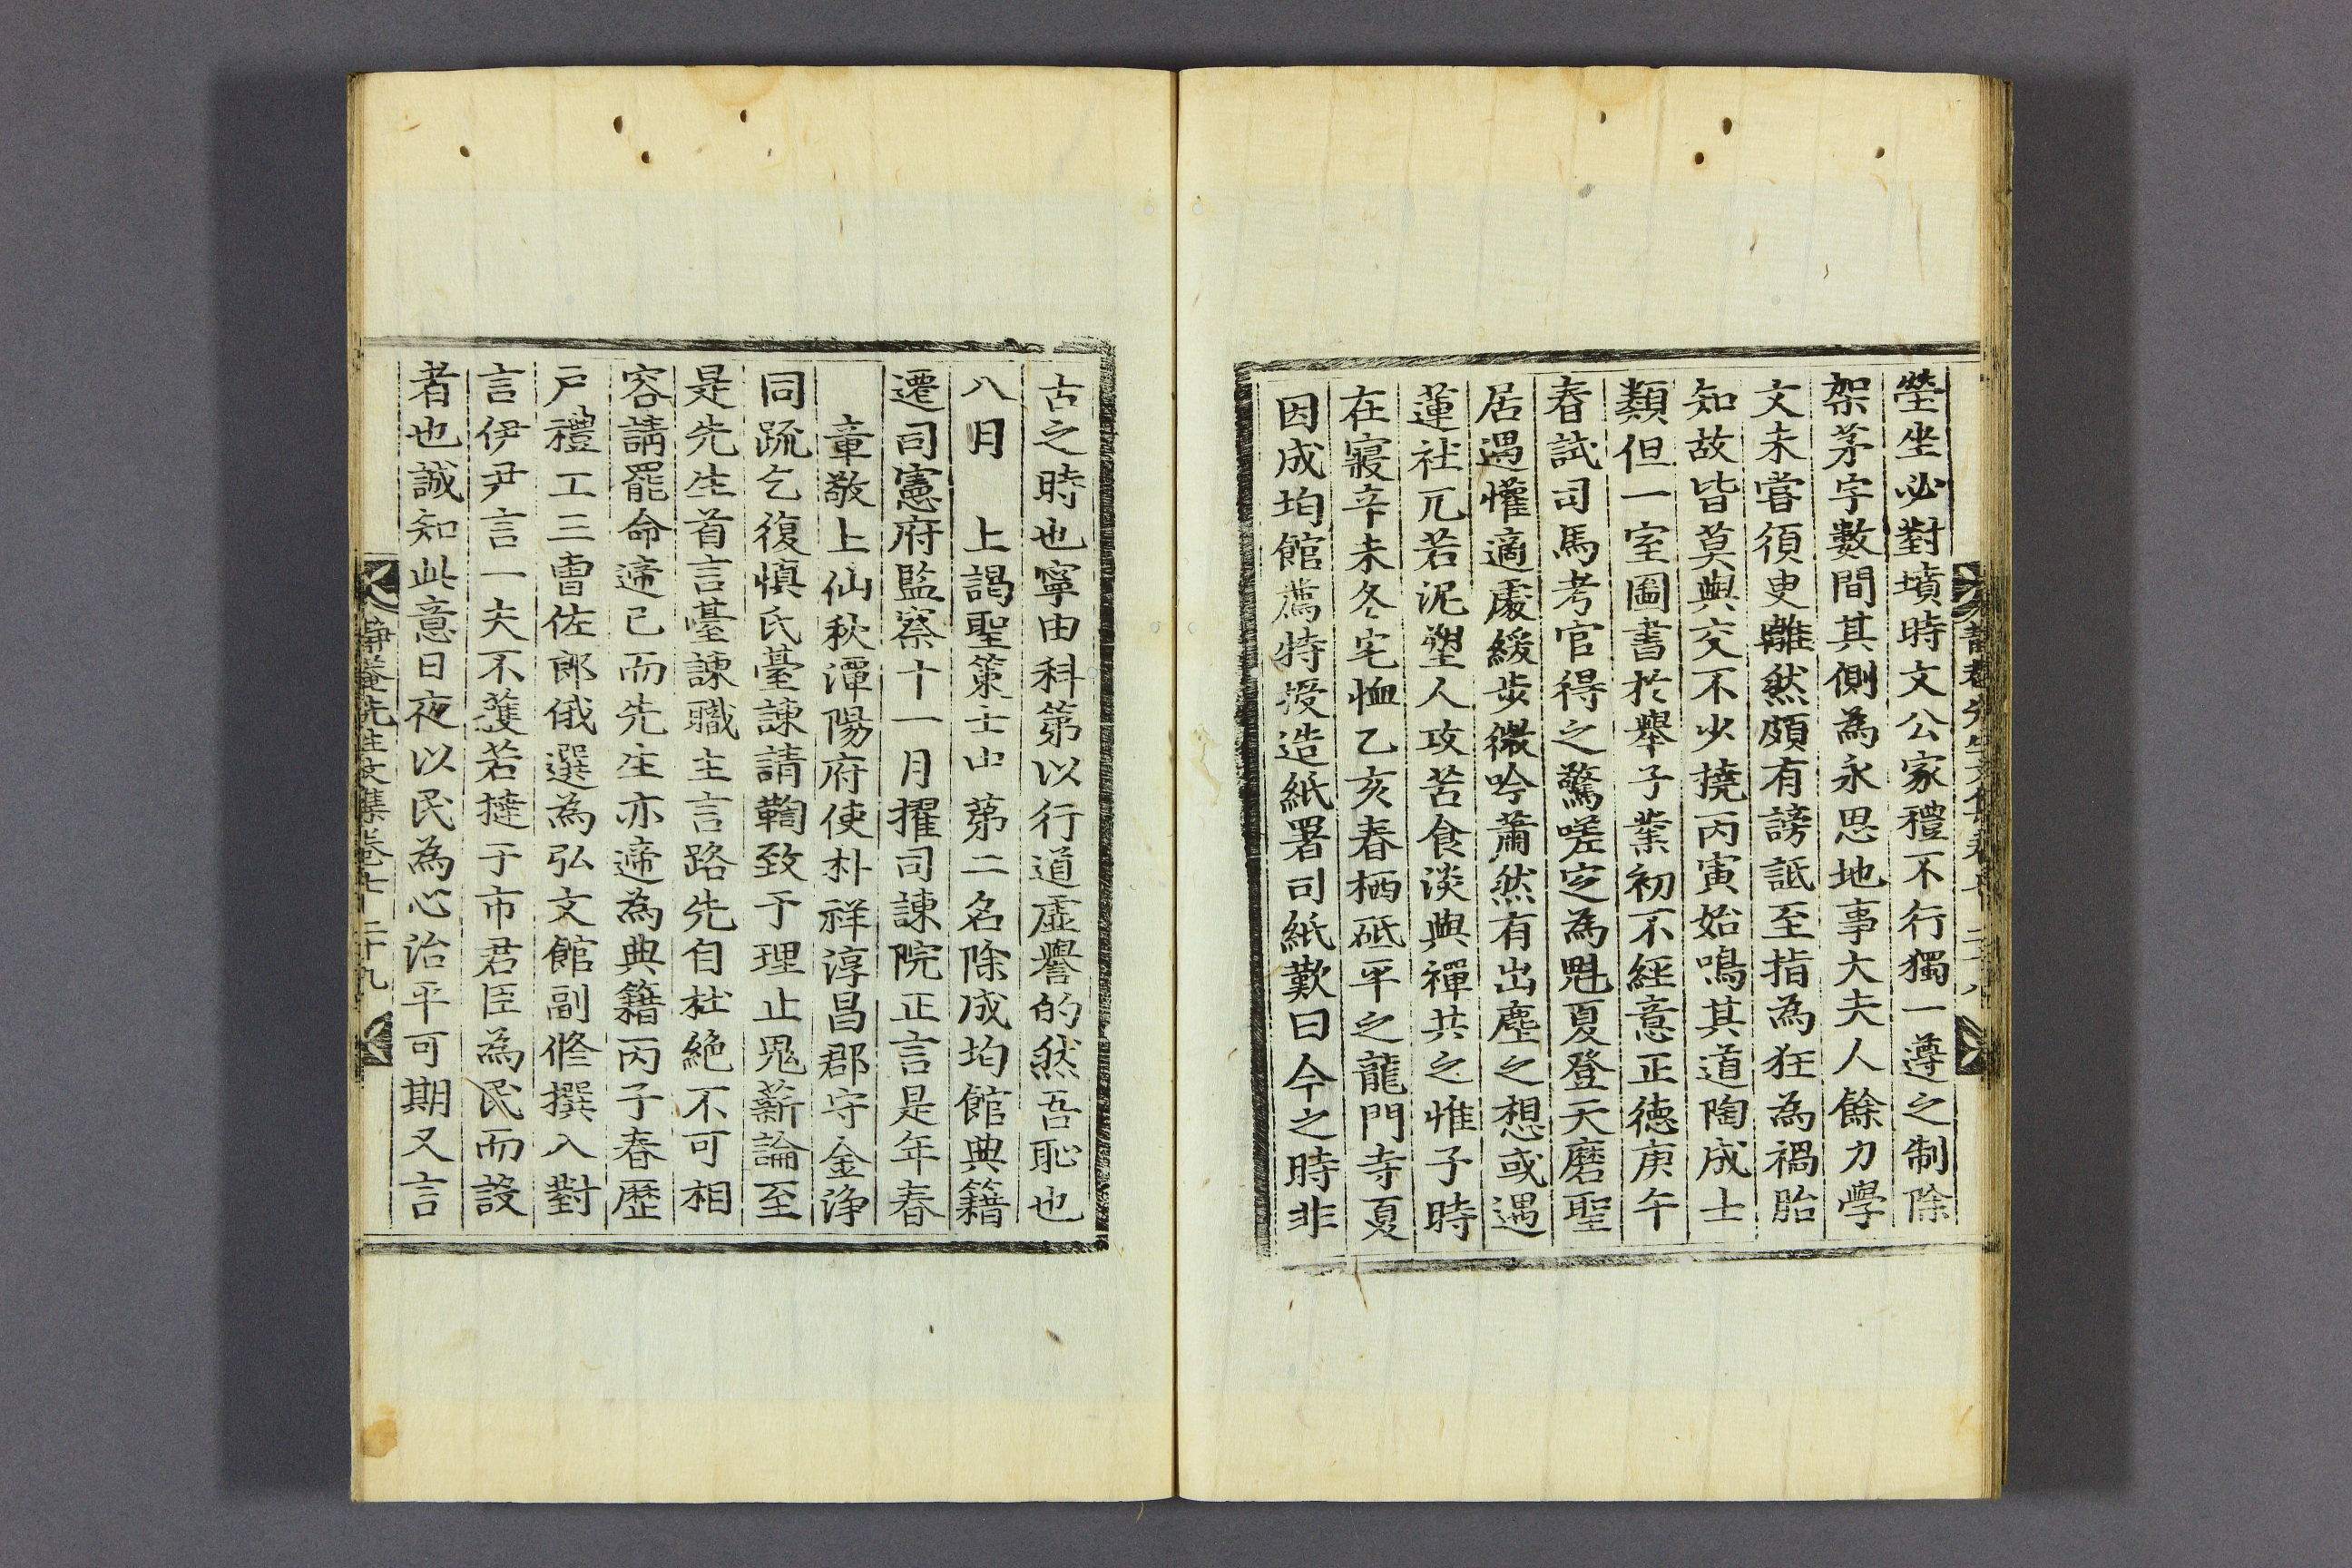 塋坐必對墳時文公家禮不行獨一遵之制除
架茅宇數間其側為永思地事大夫人餘力學
文未嘗須臾離然頗有謗詆至指為狂為禍胎
知故皆莫與交不少撓丙寅始鳴其道陶成士
類但一室圖書於舉子業初不經意正德庚午
春試司馬考官得之驚嗟定為魁夏登天磨聖
居遇懽適處緩步微吟蕭然有出塵之想或遇
蓮社兀若泥塑人攻苦食淡與禪共之惟子時
在寢辛未冬宅恤乙亥春栖砥平之龍門寺夏
因成均館薦特授造紙署司紙歎曰今之時非
古之時也寧由科第以行道虛譽的然吾恥也
八月　上謁聖策士中第二名除成均館典籍
遷司憲府監察十一月擢司諫院正言是年春
章敬上仙秋潭陽府使朴祥淳昌郡守金淨
同疏乞復慎氏臺諫請鞫致于理止鬼薪論至
是先生首言臺諫職主言路先自杜絶不可相
容請罷命遞已而先生亦遞為典籍丙子春歷
戶禮工三曹佐郎俄選為弘文館副修撰入對
言伊尹言一夫不獲若撻于市君臣為民而設
者也誠知此意日夜以民為心治平可期又言
靜菴先生文集卷七　二十九